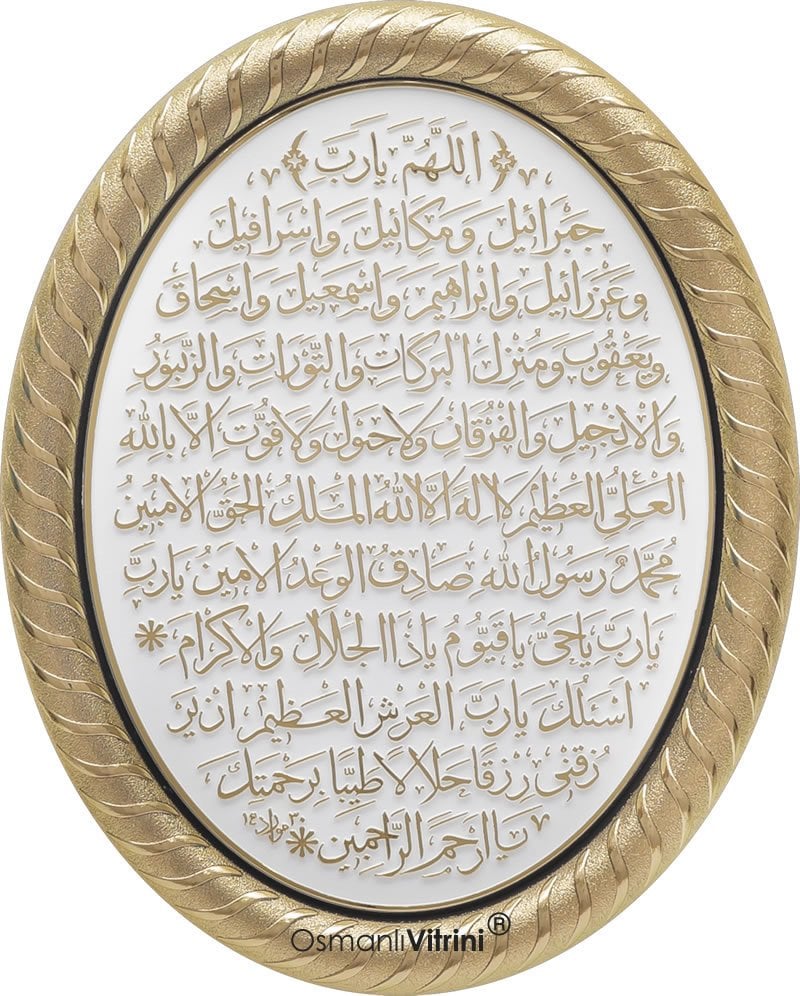 اَللّٰهُمَّ يَارَبِّ
جَبْرَائِيلَ وَمِكَائِيلَ وَاِسْرَافِيلَ
وَعَزْرَائِيلَ وَاِبْرَاهِيمَ وَاِسْمٰعِيلَ وَاِسْحَاقَ
وَيَعْقُوبَ وَمُنْزِلَ الْبَرَكَاتِ وَالتَّوْرَاتِ وَالزَّبُورِ
وَالْاِنْجِيلِ وَالْفُرْقَانِ وَلَاحَوْلَ وَلَاقُوَّتَ اِلَّا بِاللّٰهِ
الْعَلِيِّ الْعَظِيمِ لَااِلٰهَ اِلَّا اللّٰهُ الْمَلِكُ الْحَقُّ الْاَمُبِينُ
مُحَمَّدٌ رَسُولُ اللّٰهِ صَادِقُ الْوَعْدُ الْاَمِينَ يَارَبِّ
يَارَبِّ يَاحَيُّ يَاقَيُّومُ يَاذَا الْجَلَالِ وَالْاِكْرَامِ
اَسْئَلُكَ يَارَبَّ الْعَرْشِ الْعَظِيمِ اَنْ يَرْ
زُقَنِى رِزْقًا حَلَالًا طَيِّبًا بِرَحْمَتِكَ
يَااَرْحَمَ الرَّاحِمِينَ
OsmanlıVitrini®